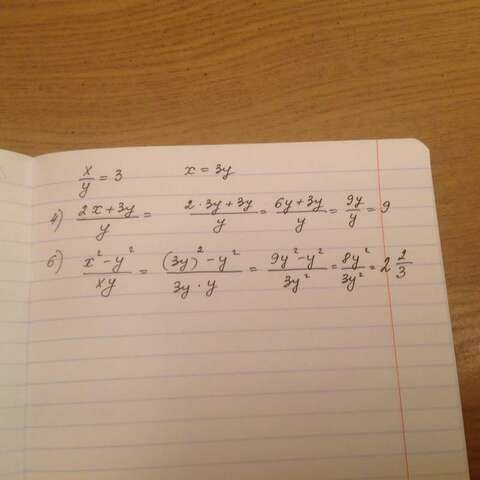 x/y = 3 x = 3y
а) (2x+3y)/y = (2·3y+3y)/y = (6y+3y)/y = 9y/y = 9
б) (x²-y²)/xy = ((3y)²-y²)/(3y·y) = (9y²-y²)/3y² = 8y²/3y² = 2 2/3